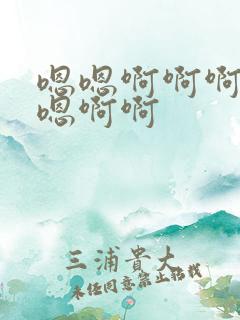 嗯嗯啊啊啊
嗯啊啊
三浦貴大
未经同意禁止转载